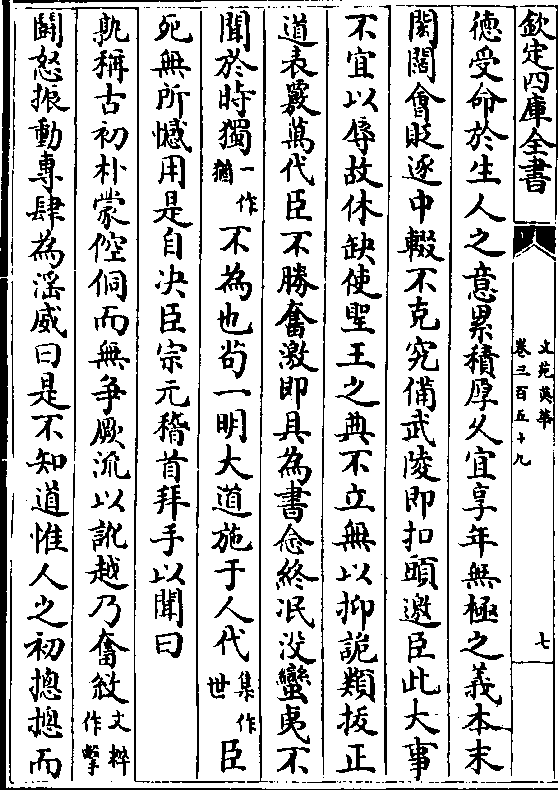 欽定四庫全書
文苑英華
卷三百五十九
七
德受命於生人之意累積厚久宜享年無極之義本末
閎闊會貶逐中輟不克究備武陵即扣頭邀臣此大事
不宜以辱故休缺使聖王之典不立無以抑詭類拔正
道表覈萬代臣不勝奮激即具為書念終泯没蠻夷不
聞於時獨一作猶不為也苟一明大道施于人代集作世臣
死無所憾用是自决臣宗元稽首拜手以聞曰
孰稱古初朴蒙倥侗而無争厥流以訛越乃奮敓文粹作擊
鬭怒振動專肆為淫威曰是不知道惟人之初摠摠而